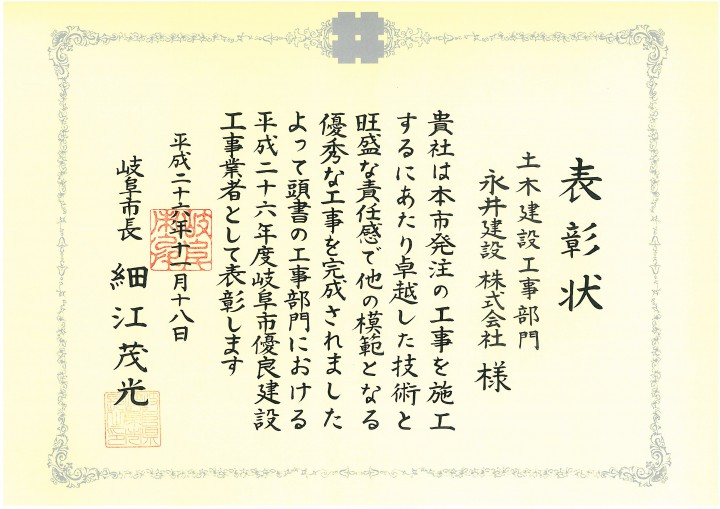 表彰状
土木建設工事部門
永井建設株式会社 様
貴社は本市発注の工事を施工
するにあたり卓越した技術と
旺盛な責任感で他の模範となる
優秀な工事を完成されました
よって頭書の工事部門における
平成二十六年度岐阜市優良建設
工事業者として表彰します
平成二十六年十一月十八日
岐阜市長 細江茂光